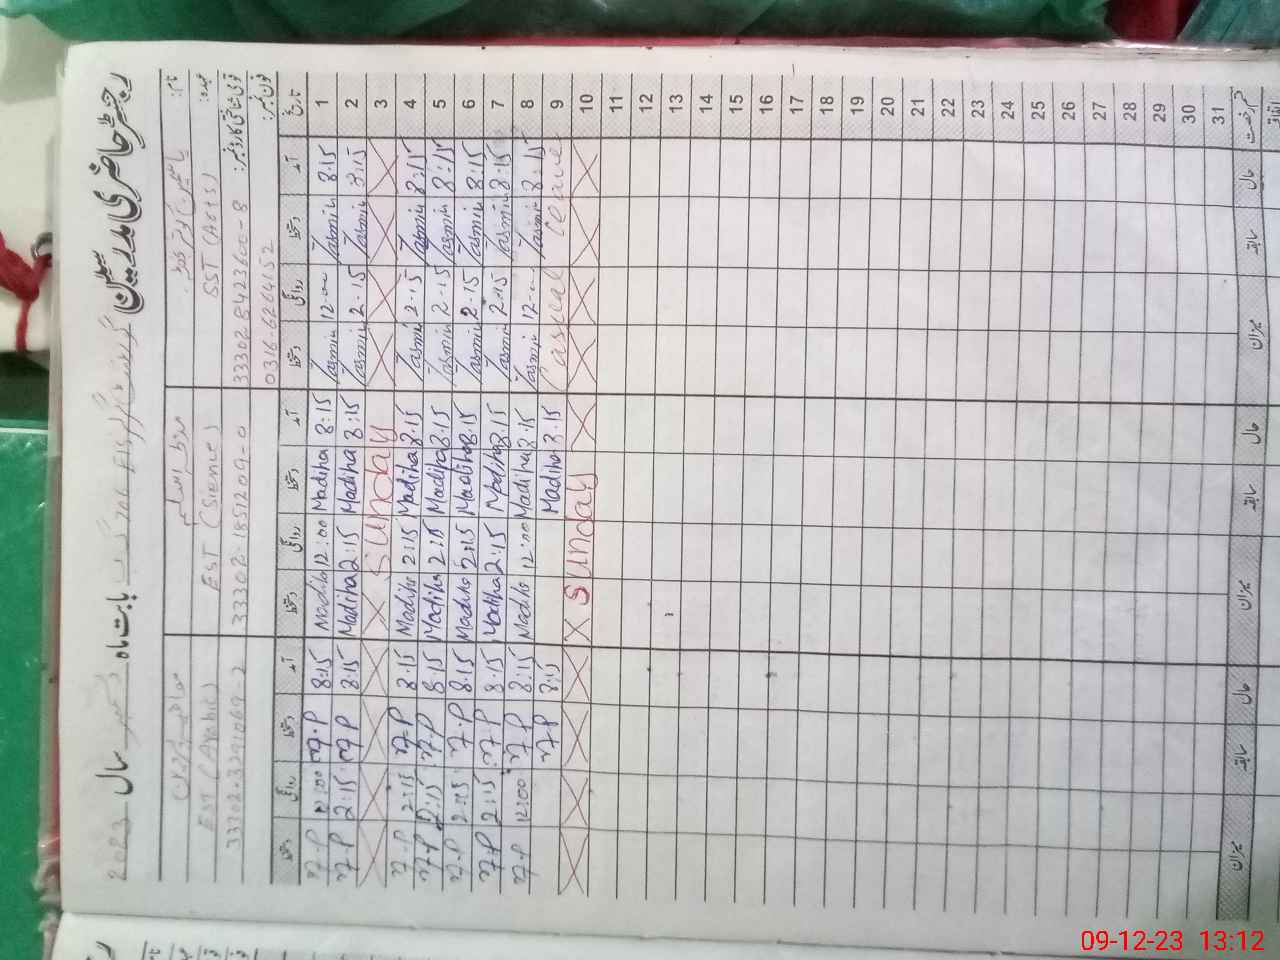 رجسٹر حاضری مدرسین
بابت ماہ دسمبر سال 2023
نام:
عہدہ: SST (Arts) EST (Science) EST (Arabic)
قومی شناختی کارڈ نمبر: 33302-1851209-0 33302-3291069-2
فون نمبر: 0316-6264152
تاریخ آمد دستخط روانگی دستخط آمد دستخط روانگی دستخط آمد دستخط روانگی دستخط
1 8:15 Yasmin 12:00 Yasmin 8:15 Madiha 12:00 Madiha 8:15 12:00
2 8:15 Yasmin 2:15 Yasmin 8:15 Madiha 2:15 Madiha 8:15 2:15
3 Sunday
4 8:15 Yasmin 2:15 Yasmin 8:15 Madiha 2:15 Madiha 8:15 2:15
5 8:15 Yasmin 2:15 Yasmin 8:15 Madiha 2:15 Madiha 8:15 2:15
6 8:15 Yasmin 2:15 Yasmin 8:15 Madiha 2:15 Madiha 8:15 2:15
7 8:15 Yasmin 2:15 Yasmin 8:15 Madiha 2:15 Madiha 8:15 2:15
8 8:15 Yasmin 12:00 Yasmin 8:15 Madiha 12:00 Madiha 8:15 12:00
9 Casual leave 8:15 Madiha 8:15
10 Sunday
11
12
13
14
15
16
17
18
19
20
21
22
23
24
25
26
27
28
29
30
31
قسم رخصت حال سابقہ میزان حال سابقہ میزان حال سابقہ میزان
09-12-23 13:12